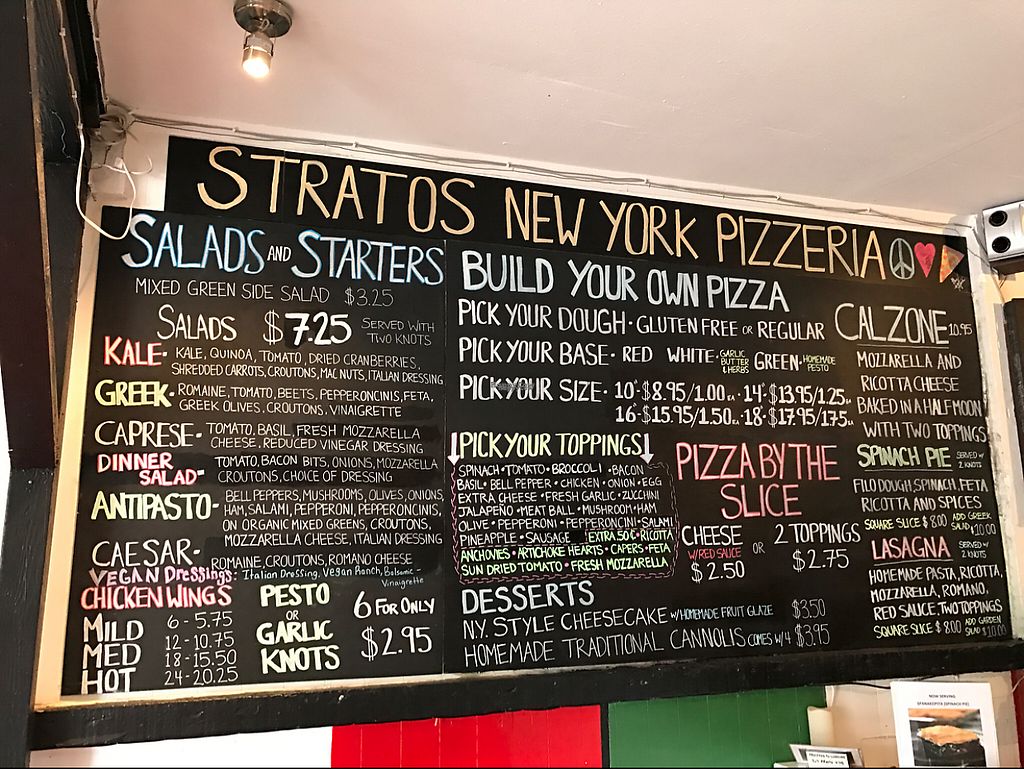 STRATOS NEW YORK PIZZERIA
SALADS AND STARTERS
MIXED GREEN SIDE SALAD $3.25
SALADS $7.25 SERVED WITH TWO KNOTS
KALE- KALE, QUINOA, TOMATO, DRIED CRANBERRIES,
SHREDDED CARROTS, CROUTONS, MAC NUTS, ITALIAN DRESSING
GREEK- ROMAINE, TOMATO, BEETS, PEPPERONCINIS, FETA,
GREEK OLIVES, CROUTONS, VINAIGRETTE
CAPRESE- TOMATO, BASIL, FRESH MOZZARELLA
CHEESE, REDUCED VINEGAR DRESSING
DINNER SALAD- TOMATO, BACON BITS, ONIONS, MOZZARELLA
CROUTONS, CHOICE OF DRESSING
ANTIPASTO- BELL PEPPERS, MUSHROOMS, OLIVES, ONIONS,
HAM, SALAMI, PEPPERONI, PEPPERONCINIS,
ON ORGANIC MIXED GREENS, CROUTONS,
MOZZARELLA CHEESE, ITALIAN DRESSING
CAESAR- ROMAINE, CROUTONS, ROMANO CHEESE
VEGAN Dressings: Italian Dressing, Vegan Ranch, Balsamic-
Vinaigrette
CHICKEN WINGS
MILD 6-5.75
MED 12-10.75
HOT 18-15.50
24-20.25
PESTO
OR
GARLIC
KNOTS
6 FOR ONLY
$2.95
BUILD YOUR OWN PIZZA
PICK YOUR DOUGH· GLUTEN FREE OR REGULAR
PICK YOUR BASE· RED WHITE· GARLIC BUTTER & HERBS GREEN· HOMEMADE PESTO
PICK YOUR SIZE· 10"-$8.95/1.00 EA · 14"-$13.95/1.25 EA
16"-$15.95/1.50 EA · 18"-$17.95/175 EA
PICK YOUR TOPPINGS
SPINACH·TOMATO·BROCCOLI·BACON
BASIL·BELL PEPPER·CHICKEN·ONION·EGG
EXTRA CHEESE·FRESH GARLIC·ZUCCHINI
JALAPEÑO·MEAT BALL·MUSHROOM·HAM
OLIVE·PEPPERONI·PEPPERONCINI·SALAMI
PINEAPPLE·SAUSAGE EXTRA 50¢·RICOTTA
ANCHOVIES·ARTICHOKE HEARTS·CAPERS·FETA
SUN DRIED TOMATO·FRESH MOZZARELLA
PIZZA BY THE
SLICE
CHEESE
W/RED SAUCE
$2.50
OR
2 TOPPINGS
$2.75
DESSERTS
N.Y. STYLE CHEESECAKE W/HOMEMADE FRUIT GLAZE $3.50
HOMEMADE TRADITIONAL CANNOLIS COMES W/4 $3.95
CALZONE 10.95
MOZZARELLA AND
RICOTTA CHEESE
BAKED IN A HALF MOON
WITH TWO TOPPINGS
SPINACH PIE SERVED W/ 2 KNOTS
FILO DOUGH, SPINACH, FETA
RICOTTA AND SPICES
SQUARE SLICE $8.00 ADD GREEK SALAD $10.00
LASAGNA SERVED W/ 2 KNOTS
HOMEMADE PASTA, RICOTTA,
MOZZARELLA, ROMANO,
RED SAUCE, TWO TOPPINGS
SQUARE SLICE $8.00 ADD GARDEN SALAD $10.00
NOW SERVING
SPANAKOPITA (SPINACH PIE)